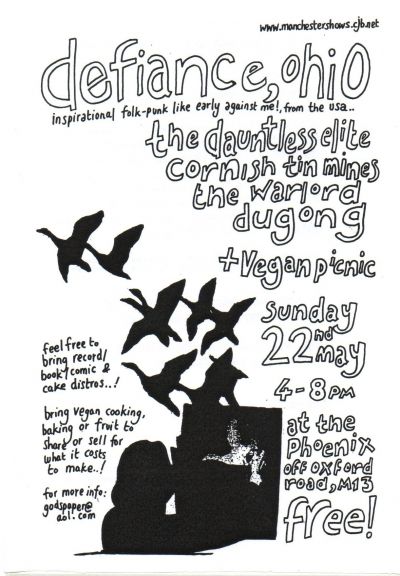 www.manchestershows.cjb.net
defiance, ohio
inspirational folk-punk like early against me!, from the usa..
the dauntless elite
cornish tin mines
the warlord
dugong
+ vegan picnic
sunday
22nd
may
4-8pm
at the
Phoenix
off oxford
road, M13
free!
feel free to
bring record/
book/comic &
cake distros..!
bring vegan cooking,
baking or fruit to
share or sell for
what it costs
to make..!
for more info:
godspaper@
aol.com